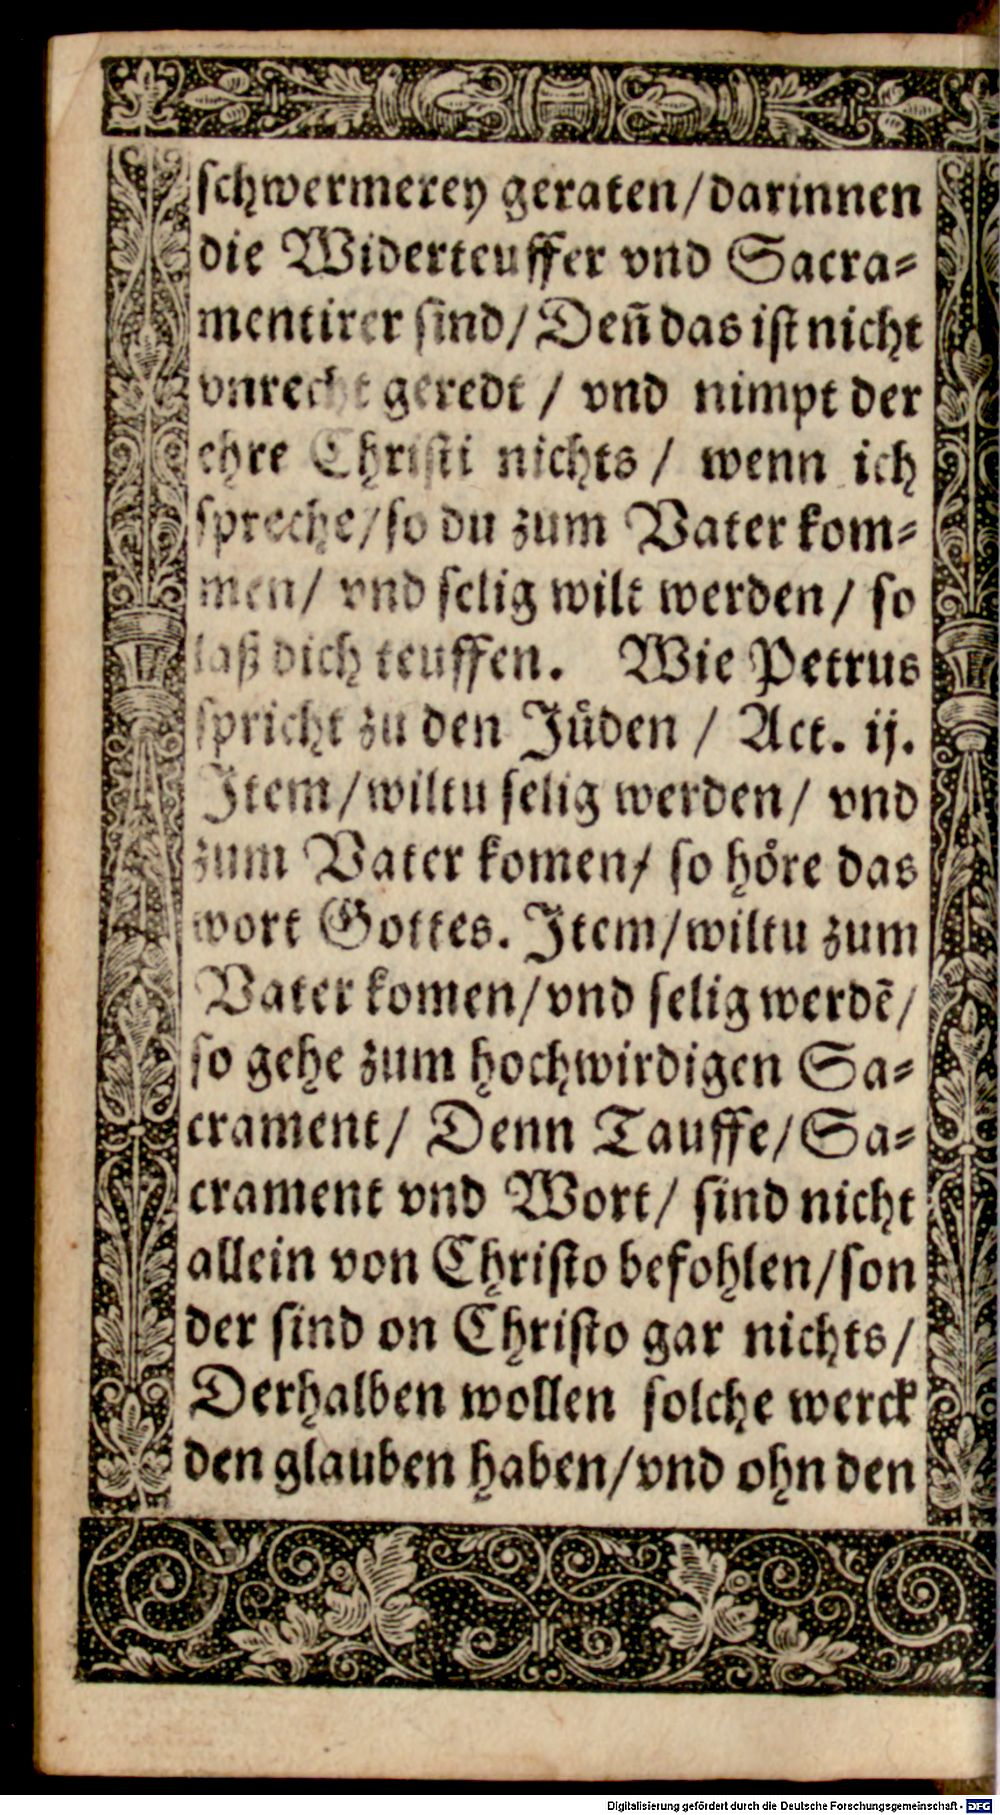 schwermerey geraten/darinnen
die Widerteuffer vnd Sacra⸗
mentirer sind/Deñ das ist nicht
vnrecht geredt / vnd nimpt der
ehre Christi nichts / wenn ich
spreche/so du zum Vater kom⸗
men/ vnd selig wilt werden/ so
laß dich teuffen. Wie Petrus
spricht zu den Jůden / Act. ij.
Item/wiltu selig werden/ vnd
zum Vater komen/ so hőre das
wort Gottes. Item/wiltu zum
Vater komen/vnd selig werdẽ/
so gehe zum hochwirdigen Sa⸗
crament/ Denn Tauffe/Sa⸗
crament vnd Wort/ sind nicht
allein von Christo befohlen/son
der sind on Christo gar nichts/
Derhalben wollen solche werck
den glauben haben/vnd ohn den
Digitalisierung gefördert durch die Deutsche Forschungsgemeinschaft - DFG